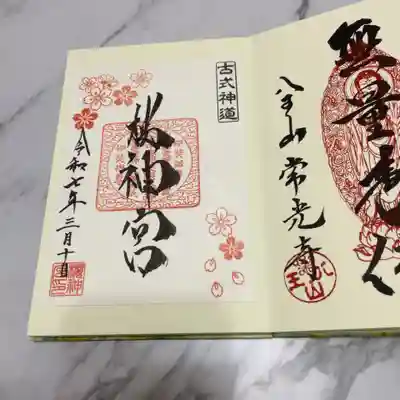 古式神道
桜神宮
令和七年三月十日
無量
八王山 常光寺